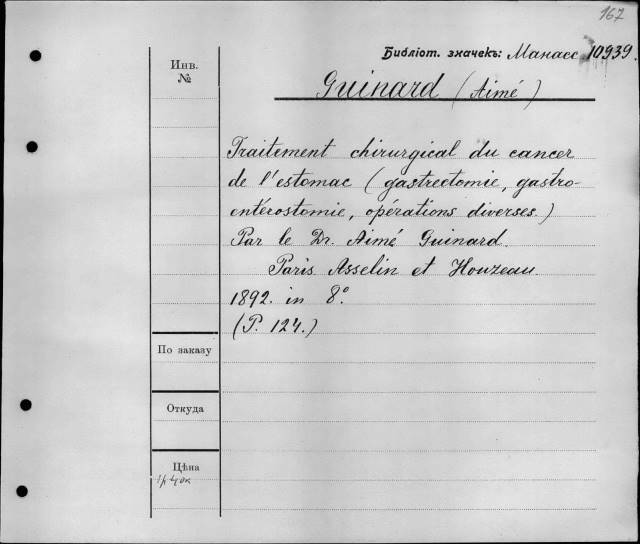 167
Библіот. значекъ: Манасс 10939.
Инв.
№
Guinard (Aimé)
Traitement chirurgical du cancer
de l'estomac (gastrectomie, gastro-
entérostomie, opérations diverses.)
Par le Dr. Aimé Guinard.
Paris Asselin et Houzeau.
1892. in 8°.
(P. 124.)
По заказу
Откуда
Цѣна